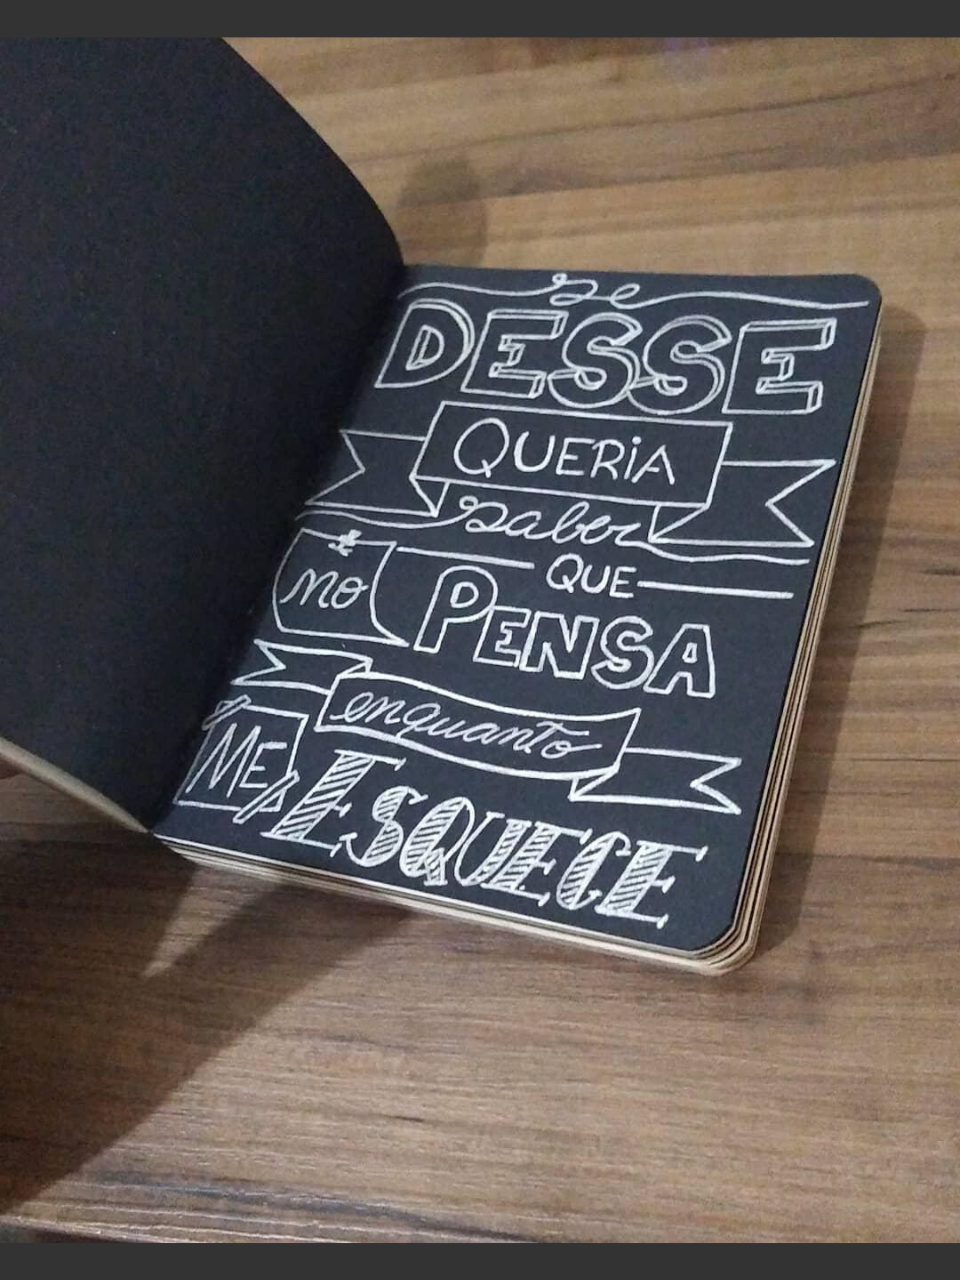 se
DESSE
QUERiA
saber
no QUE
PENSA
enquanto
ME ESQUECE